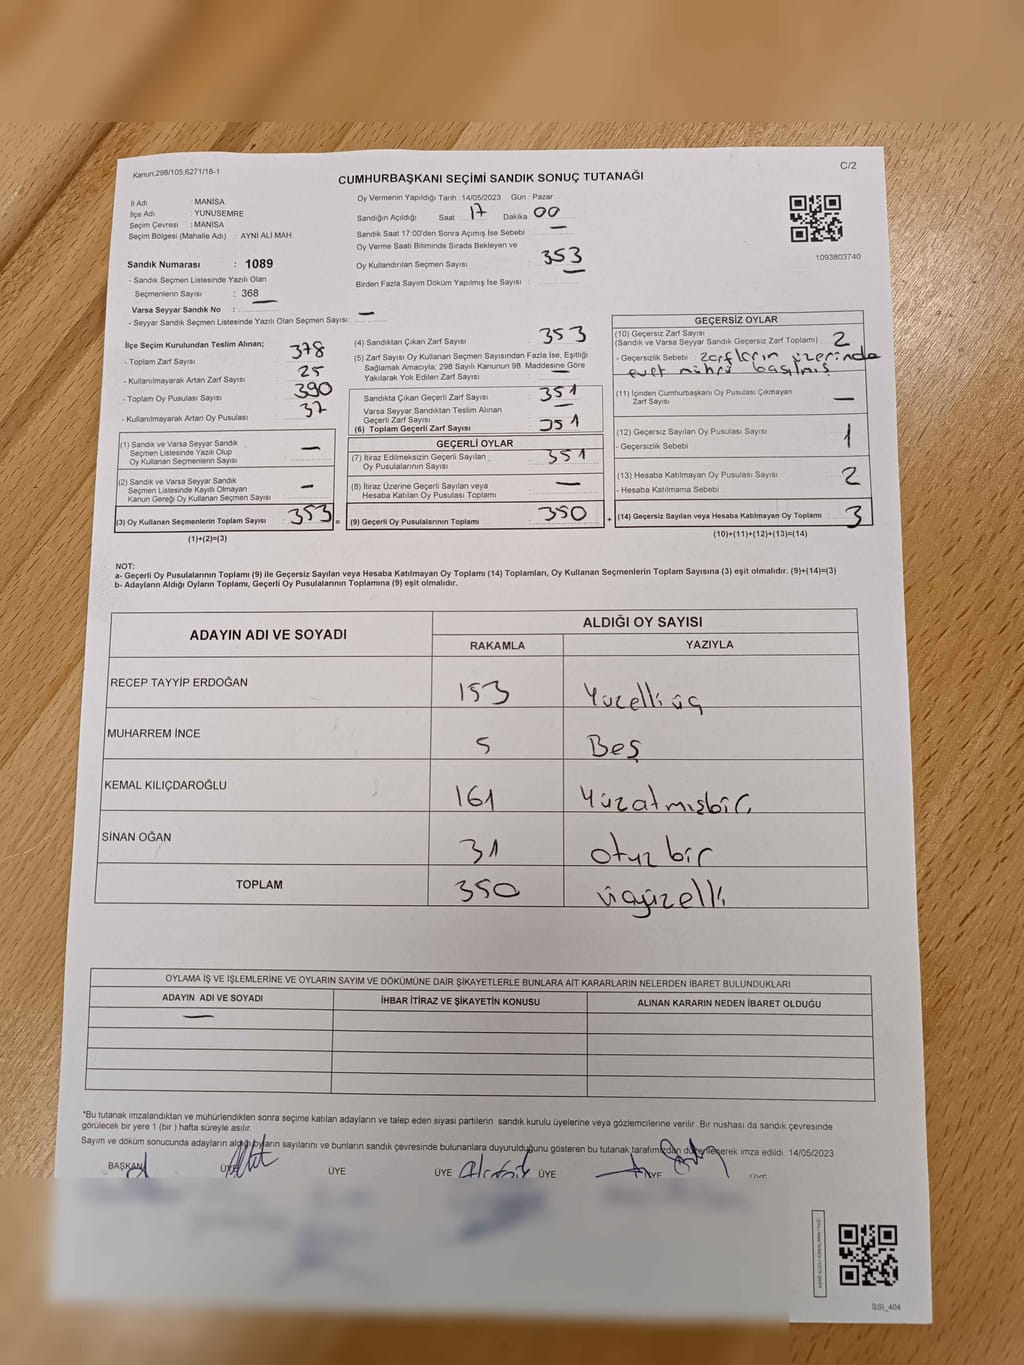 Kanun:298/105;6271/18-1
C/2
CUMHURBAŞKANI SEÇİMİ SANDIK SONUÇ TUTANAĞI
İl Adı : MANİSA
İlçe Adı : YUNUSEMRE
Seçim Çevresi : MANİSA
Seçim Bölgesi (Mahalle Adı) : AYNİ ALİ MAH.
Sandık Numarası : 1089
- Sandık Seçmen Listesinde Yazılı Olan
Seçmenlerin Sayısı : 368
Varsa Seyyar Sandık No : —
- Seyyar Sandık Seçmen Listesinde Yazılı Olan Seçmen Sayısı: —
Oy Vermenin Yapıldığı Tarih :14/05/2023 Gün : Pazar
Sandığın Açıldığı Saat 17 Dakika 00
Sandık Saat 17:00'den Sonra Açımış İse Sebebi : —
Oy Verme Saati Bitiminde Sırada Bekleyen ve
Oy Kullandırılan Seçmen Sayısı 353
Birden Fazla Sayım Döküm Yapılmış İse Sayısı : —
1093803740
İlçe Seçim Kurulundan Teslim Alınan;
- Toplam Zarf Sayısı 378
- Kullanılmayarak Artan Zarf Sayısı 25
- Toplam Oy Pusulası Sayısı 390
- Kullanılmayarak Artan Oy Pusulası 37
(1) Sandık ve Varsa Seyyar Sandık
Seçmen Listesinde Yazılı Olup
Oy Kullanan Seçmenlerin Sayısı —
(2) Sandık ve Varsa Seyyar Sandık
Seçmen Listesinde Kayıtlı Olmayan
Kanun Gereği Oy Kullanan Seçmen Sayısı —
(3) Oy Kullanan Seçmenlerin Toplam Sayısı 353 =
(1)+(2)=(3)
(4) Sandıktan Çıkan Zarf Sayısı 353
(5) Zarf Sayısı Oy Kullanan Seçmen Sayısından Fazla İse, Eşitliği
Sağlamak Amacıyla; 298 Sayılı Kanunun 98. Maddesine Göre
Yakılarak Yok Edilen Zarf Sayısı —
Sandıkta Çıkan Geçerli Zarf Sayısı 351
Varsa Seyyar Sandıktan Teslim Alınan
Geçerli Zarf Sayısı —
(6) Toplam Geçerli Zarf Sayısı 351
GEÇERLİ OYLAR
(7) İtiraz Edilmeksizin Geçerli Sayılan
Oy Pusulalarının Sayısı 351
(8) İtiraz Üzerine Geçerli Sayılan veya
Hesaba Katılan Oy Pusulası Toplamı —
(9) Geçerli Oy Pusulalarının Toplamı 350 +
GEÇERSİZ OYLAR
(10) Geçersiz Zarf Sayısı
(Sandık ve Varsa Seyyar Sandık Geçersiz Zarf Toplamı) 2
- Geçersizlik Sebebi : zarfların üzerinde
evet mührü basılmış
(11) İçinden Cumhurbaşkanı Oy Pusulası Çıkmayan
Zarf Sayısı —
(12) Geçersiz Sayılan Oy Pusulası Sayısı 1
- Geçersizlik Sebebi
(13) Hesaba Katılmayan Oy Pusulası Sayısı 2
- Hesaba Katılmama Sebebi
(14) Geçersiz Sayılan veya Hesaba Katılmayan Oy Toplamı 3
(10)+(11)+(12)+(13)=(14)
NOT:
a- Geçerli Oy Pusulalarının Toplamı (9) ile Geçersiz Sayılan veya Hesaba Katılmayan Oy Toplamı (14) Toplamları, Oy Kullanan Seçmenlerin Toplam Sayısına (3) eşit olmalıdır. (9)+(14)=(3)
b- Adayların Aldığı Oyların Toplamı, Geçerli Oy Pusulalarının Toplamına (9) eşit olmalıdır.
ADAYIN ADI VE SOYADI
ALDIĞI OY SAYISI
RAKAMLA YAZIYLA
RECEP TAYYİP ERDOĞAN 153 Yüzelli üç
MUHARREM İNCE 5 Beş
KEMAL KILIÇDAROĞLU 161 Yüzatmışbir
SİNAN OĞAN 31 otuz bir
TOPLAM 350 üçyüzelli
OYLAMA İŞ VE İŞLEMLERİNE VE OYLARIN SAYIM VE DÖKÜMÜNE DAİR ŞİKAYETLERLE BUNLARA AİT KARARLARIN NELERDEN İBARET BULUNDUKLARI
ADAYIN ADI VE SOYADI İHBAR İTİRAZ VE ŞİKAYETİN KONUSU ALINAN KARARIN NEDEN İBARET OLDUĞU
—
*Bu tutanak imzalandıktan ve mühürlendikten sonra seçime katılan adayların ve talep eden siyasi partilerin sandık kurulu üyelerine veya gözlemcilerine verilir. Bir nüshası da sandık çevresinde
görülecek bir yere 1 (bir ) hafta süreyle asılır.
Sayım ve döküm sonucunda adayların aldığı oyların sayılarını ve bunların sandık çevresinde bulunanlara duyurulduğunu gösteren bu tutanak tarafımızdan düzenlenerek imza edildi. 14/05/2023
BAŞKAN ÜYE ÜYE ÜYE ÜYE ÜYE ÜYE
SSI_404